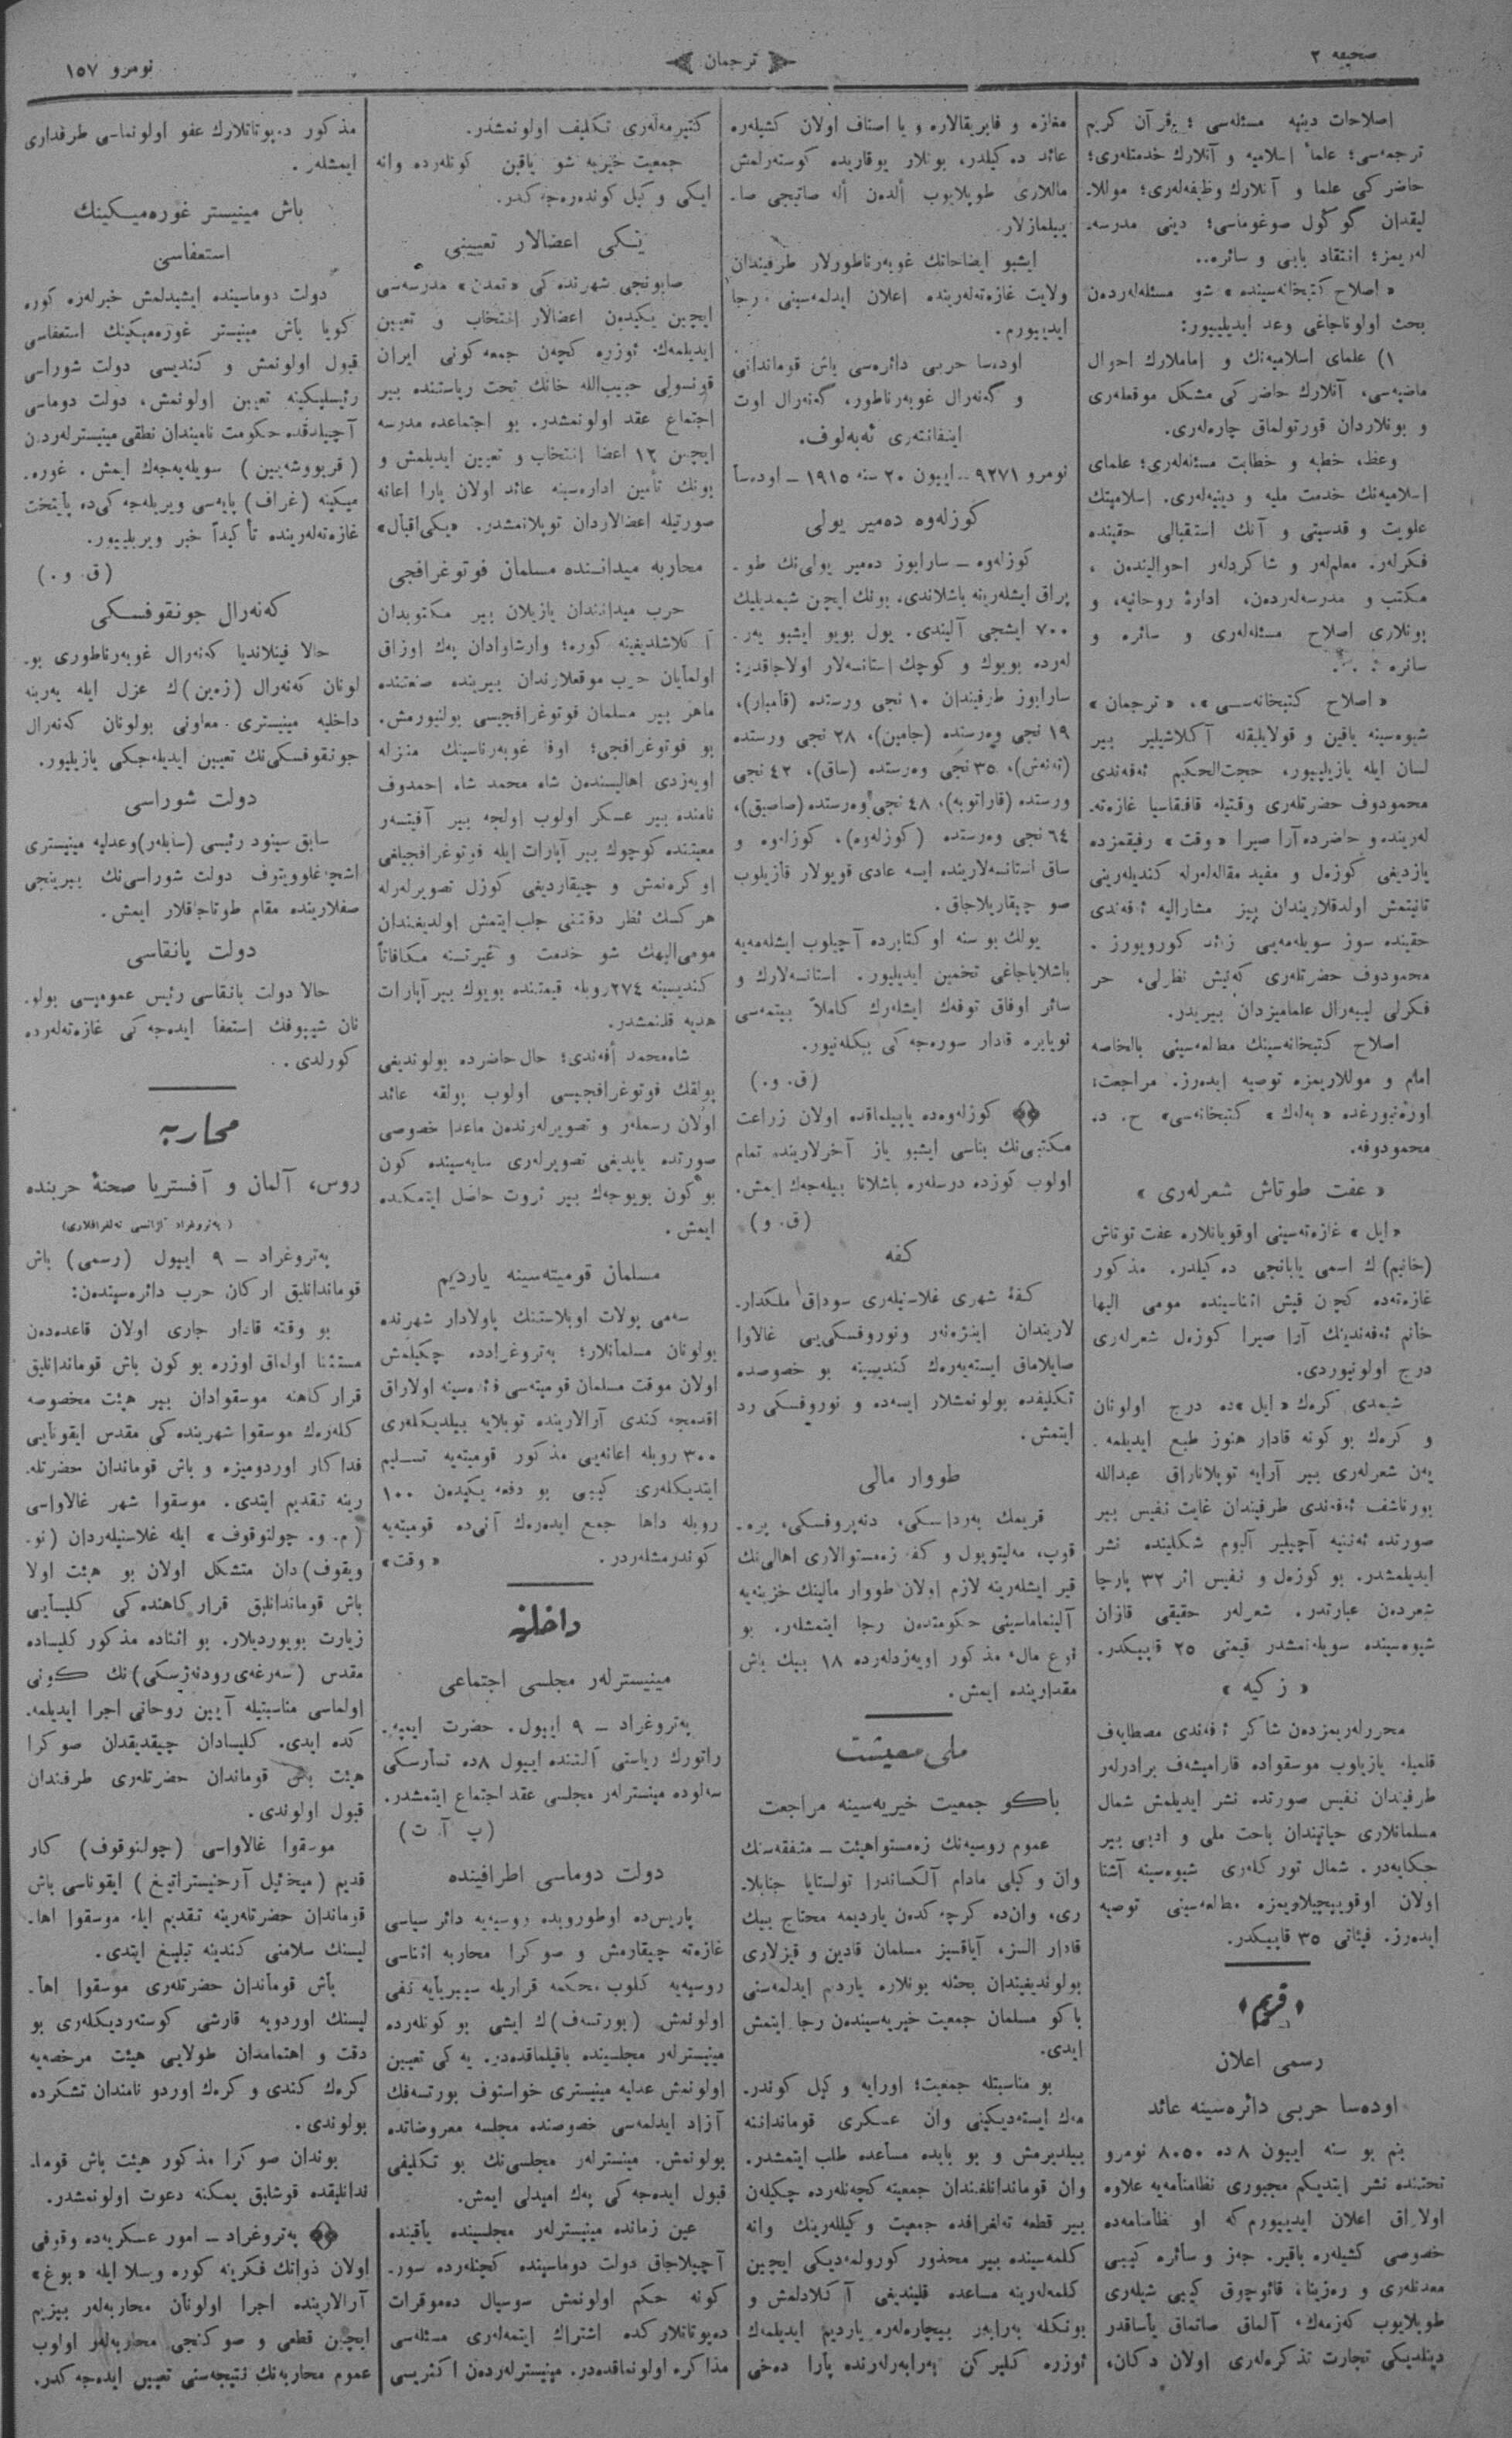 صحیفه ۲
ترجمان
نومرو ۱۵۷
اصلاحات دینیه مسئله‌سی ؛ قرآن کریم
ترجمه‌سی؛ علماٴ اسلامیه و آنلارك خدمتله‌ری؛
حاضر کی علما و آنلارك وظیفه‌له‌ری؛ موللا-
لیقدان گوگول صوغوماسی؛ دینی مدرسه-
له‌ریمز؛ انتقاد بابی و سائره..
« اصلاح کتبخانه‌سینده » شو مسئله‌له‌ردن
بحث اولوناجاغی وعد ایدیلیور:
۱) علمای اسلامیه‌نك و اماملارك احوال
ماضیه‌سی، آنلارك حاضر کی مشکل موقعله‌ری
و بونلاردان قورتولماق چاره‌له‌ری.
وعظ، خطبه و خطابت مسئله‌له‌ری؛ علمای
اسلامیه‌نك خدمت ملیه و دینیه‌له‌ری. اسلامیتك
علویت و قدسیتی و آنك استقبالی حقینده
فکرلر. معلملر و شاکردلر احوالیندن ،
مکتب و مدرسه‌له‌ردن، ادارهٔ روحانیه، و
بونلاری اصلاح مسئله‌له‌ری و سائره و
سائره
« اصلاح کتبخانه‌سی »، « ترجمان »
شیوه‌سینه یاقین و قولایلیقله آکلاشیلیر بیر
لسان ایله یازیلییور. حجت‌الحکیم ئه‌فه‌ندی
محمودوف حضرتله‌ری وقتیله قافقاسیا غازه‌ته-
له‌رینده و حاضرده آرا صیرا « وقت » رفیقمزده
یازدیغی گوزه‌ل و مفید مقاله‌له‌رله کندیله‌رینی
تانیتمش اولدقلاریندان بیز مشارالیه ئه‌فه‌ندی
حقینده سوز سویله‌مه‌یی زائد کورویورز .
محمودوف حضرتله‌ری که‌نیش نظرلی، حر
فکرلی لیبه‌رال علمامیزدان بیریدر.
اصلاح کتبخانه‌سینك مطالعه‌سینی بالخاصه
امام و موللاریمزه توصیه ایده‌رز. مراجعت:
اورنبورغده « به‌لك » کتبخانه‌سی» ح. د.
محمودوفه.
« عفت طوتاش شعرله‌ری »
« ایل » غازه‌ته‌سینی اوقویانلاره عفت توتاش
(خانیم)ك اسمی یابانجی ده‌کیلدر. مذکور
غازه‌ته‌ده کچن قیش اثناسینده مومی الیها
خانم ئه‌فه‌ندینك آرا صیرا کوزه‌ل شعرله‌ری
درج اولونیوردی.
شیمدی کرك « ایل »ده درج اولونان
و کرك بو کونه قادار هنوز طبع ایدیلمه-
یه‌ن شعرله‌ری بیر آرایه توپلاناراق عبدالله
بورناشف ئه‌فه‌ندی طرفیندان غایت نفیس بیر
صورتده ئه‌ننیه آچیلیر آلبوم شکلینده نشر
ایدیلمشدر. بو کوزه‌ل و نفیس اثر ۳۲ پارچا
شعردن عبارتدر. شعرله‌ر حقیقی قازان
شیوه‌سینده سویله‌نمشدر قیمتی ۲۵ قاپیکدر.
« زکیه »
محررله‌ریمزدن شاکر ئه‌فه‌ندی مصطایه‌ف
قلمیله یازیلوب موسقواده قارامیشه‌ف برادرلر
طرفیندان نفیس صورتده نشر ایدیلمش شمال
مسلمانلاری حیاتیندان باحث ملی و ادبی بیر
حکایه‌در. شمال تورکله‌ری شیوه‌سینه آشنا
اولان اوقویوجیلاریمزه مطالعه‌سینی توصیه
ایده‌رز. فیئاتی ۳۵ قاپیکدر.
قریم
رسمی اعلان
اوده‌سا حربی دائره‌سینه عائد
بنم بو سنه اییون ۸ ده ۸۰۵۰ نومرو
تحتنده نشر ایتدیکم مجبوری نظامنامه‌یه علاوه
اولاراق اعلان ایدییورم که او نظامنامه‌ده
خصوصی کشیله‌ره باقیر، جه‌ز و سائره کیبی
معدنله‌ری و ره‌زینا، قائوچوق کیبی شیله‌ری
طوپلایوب که‌زمه‌ك، آلماق صاتماق یاساقدر
دینلدیکی تجارت تذکره‌له‌ری اولان دکان،
مغازه و فابریقالاره و یا اصناف اولان کشیله‌ره
عائد ده‌کیلدر، بونلار یوقاریده کوسته‌رلمش
ماللاری طوپلایوب ألدن أله صاتیجی صا-
ییلمازلار.
ایشبو ایضاحاتك غوبه‌رناطورلار طرفیندان
ولایت غازه‌ته‌له‌رینده اعلان ایدلمه‌سینی رجا
ایدییورم.
اوده‌سا حربی دائره‌سی باش قوماندانی
و گه‌نه‌رال غوبه‌رناطور، گه‌نه‌رال اوت
اینفانته‌ری ئه‌به‌لوف.
نومرو ۹۲۷۱ – اییون ۲۰ سنه ۱۹۱۵ – اوده‌سا
کوزله‌وه ده‌میر یولی
کوزله‌وه – سارابوز ده‌میر یولی‌نك طو-
پراق ایشله‌رینه باشلاندی. بونك ایچن شیمدیلیك
۷۰۰ ایشجی آلیندی. یول بویو ایشبو یه‌ر-
له‌رده بویوك و کوچك استانسه‌لار اولاجاقدر:
سارابوز طرفیندان ۱۰ نجی ورستده (قامبار)،
۱۹ نجی وه‌رستده (جامین)، ۲۸ نجی ورستده
(ته‌نه‌ش)، ۳۵ نجی وه‌رستده (ساق)، ۴۲ نجی
ورستده (قاراتوبه)، ۴۸ نجی وه‌رستده (صاصیق)،
۶۴ نجی وه‌رستده (کوزله‌وه)، کوزله‌وه و
ساق استانسه‌لارینده ایسه عادی قویولار قازیلوب
صو چیقاریلاجاق.
یولك بو سنه اوکتابرده آچیلوب ایشله‌مه‌یه
باشلایاجاغی تخمین ایدیلیور. استانسه‌لارك و
سائر اوفاق توفه‌ك ایشله‌رك کاملاً بیتمه‌سی
نویابره قادار سوره‌جه‌کی بیکله‌نیور.
(ق. و.)
کوزله‌وه‌ده یاپیلماقده اولان زراعت
مکتبی‌نك بناسی ایشبو یاز آخرلارینده تمام
اولوب کوزده درسله‌ره باشلانا بیله‌جه‌ك ایمش.
(ق. و)
کفه
کفهٔ شهری غلاسنیله‌ری سوداق ملکدار-
لاریندان اینژه‌نه‌ر ونوروفسکی‌یی غالاوا
صایلاماق ایسته‌یه‌رك کندیسینه بو خصوصده
تکلیفده بولونمشلار ایسه‌ده و نوروفسکی رد
ایتمش.
طووار مالی
قریمك به‌ردانسکی، دنه‌پروفسکی، پره-
قوپ، مه‌لیتوپول و کفه زه‌مستوالاری اهالی‌نك
قیر ایشله‌رینه لازم اولان طووار مالینك خزینه‌یه
آلینماماسینی حکومتدن رجا ایتمشلر. بو
نوع مال مذکور اویه‌زدله‌رده ۱۸ بیك باش
مقدارینده ایمش.
ملی معیشت
باکو جمعیت خیریه‌سینه مراجعت
عموم روسیه‌نك زه‌مستوا هیئت – متفقه‌سنك
وان و کیلی مادام آلکساندرا تولستایا جنابلا-
ری، وان‌ده کرچه‌کدن یاردیمه محتاج بیك
قادار السز، آیاقسیز مسلمان قادین و قیزلاری
بولوندیغیندان بحثله بونلاره یاردیم ایدلمه‌سنی
باکو مسلمان جمعیت خیریه‌سیندن رجا ایتمش
ایدی.
بو مناسبتله جمعیت؛ اورایه و کیل کوندر-
مه‌ك ایسته‌دیکینی وان عسکری قوماندانه
بیلدیرمش و بو بابده مساعده طلب ایتمشدر.
وان قوماندانلغندان جمعیته کچه‌نله‌رده چکیلن
بیر قطعه ته‌لغرافده جمعیت و کیلله‌رینك وانه
کلمه‌سینده بیر محذور کورولمه‌دیکی ایچین
کلمه‌له‌رینه مساعده قلیندیغی آکلادلمش و
بونکله به‌رابه‌ر بیچاره‌له‌ره یاردیم ایدیلمه‌ك
ئوزره کلیرکن به‌رابه‌رله‌رنده پارا ده‌خی
کتیرمه‌له‌ری تکلیف اولونمشدر.
جمعیت خیریه شو یاقین کونله‌رده وانه
ایکی و کیل کوندره‌جه‌کدر.
یکی اعضالار تعیینی
صابونجی شهرنده‌کی « تمدن » مدرسه‌سی
ایچین یکیدن اعضالار انتخاب و تعیین
ایدیلمه‌ك ئوزره کچه‌ن جمعه کونی ایران
قونسولی حبیب‌الله خانك تحت ریاستنده بیر
اجتماع عقد اولونمشدر. بو اجتماعده مدرسه
ایچین ۱۲ اعضا انتخاب و تعیین ایدیلمش و
بونك تأمین اداره‌سینه عائد اولان پارا اعانه
صورتیله اعضالاردان توپلانمشدر. «یکی اقبال»
محاربه میدانینده مسلمان فوتوغرافجی
حرب میدانندان یازیلان بیر مکتوبدان
آکلاشلدیغینه کوره؛ وارشاوادان یه‌ك اوزاق
اولمایان حرب موقعلارندان بیرینده صنعتنده
ماهر بیر مسلمان فوتوغرافجیسی بولنیورمش.
بو فوتوغرافجی؛ اوفا غوبه‌رناسینك منزله
اویه‌زدی اهالیسندن شاه محمد شاه احمدوف
نامنده بیر عسکر اولوب اولجه بیر آفیتسه‌ر
معیتنده کوچوك بیر آپارات ایله فوتوغرافجیلغی
اوکره‌نمش و چیقاردیغی کوزل تصویرله‌رله
هر کسك نظر دقتنی جلب ایتمش اولدیغندان
مومی‌الیهك شو خدمت و غیرتنه مکافاتاً
کندیسینه ۲۷۴ روبله قیمتنده بویوك بیر آپارات
هدیه قلنمشدر.
شاه‌محمد أفه‌ندی؛ حال حاضرده بولوندیغی
پولقك فوتوغرافجیسی اولوب پولقه عائد
اولان رسملر و تصویرله‌رندن ماعدا خصوصی
صورتده یاپدیغی تصویرله‌ری سایه‌سینده کون
بو کون بویوجه‌ك بیر ثروت حاصل ایتمکده
ایمش.
مسلمان قومیته‌سینه یاردیم
سه‌می پولات اوبلاستنك پاولادار شهرنده
بولونان مسلمانلار؛ په‌تروغرادده چکیلمش
اولان موقت مسلمان قومیته‌سی فائده‌سینه اولاراق
اقدمجه کندی آرالارینده توپلایه بیلدیکله‌ری
۳۰۰ روبله اعانه‌یی مذکور قومیته‌یه تسلیم
ایتدیکله‌ری کیبی بو دفعه یکیدن ۱۰۰
روبله داها جمع ایده‌رك آنی‌ده قومیته‌یه
کوندرمشله‌ردر. « وقت »
داخلیه
مینیسترله‌ر مجلسی اجتماعی
په‌تروغراد – ۹ اییول. حضرت ایمپه-
راتورك ریاستی آلتنده اییول ۸ده تسارسکی
سه‌لوده مینسترله‌ر مجلسی عقد اجتماع ایتمشدر.
(پ آ. ت)
دولت دوماسی اطرافینده
پاریس‌ده اوطوروبده روسیه‌یه دائر سیاسی
غازه‌ته چیقارمش و صوکرا محاربه اثناسی
روسیه‌یه کلوب محکمه قراریله سیبریایه نفی
اولونمش (بورتسه‌ف)ك ایشی بو کونله‌رده
مینیسترله‌ر مجلسینده باقیلماقده‌در. یه‌کی تعیین
اولونمش عدلیه مینیستری خواستوف بورتسه‌فك
آزاد ایدلمه‌سی خصوصنده مجلسه معروضاتده
بولونمش. مینسترله‌ر مجلسی‌نك بو تکلیفی
قبول ایده‌جه‌کی یه‌ك امیدلی ایمش.
عین زمانده مینیسترله‌ر مجلسینده یاقینده
آچیلاجاق دولت دوماسینده کچنله‌رده سور-
کونه حکم اولونمش سوسیال ده‌موقرات
ده‌پوتاتلارکده اشتراك ایتمه‌له‌ری مسئله‌سی
مذاکره اولونماقده‌در. مینیسترله‌ردن اکثریسی
مذکور ده‌پوتاتلارك عفو اولونماسی طرفداری
ایمشلر.
باش مینیستر غوره‌میکینك
استعفاسی
دولت دوماسینده ایشیدلمش خبرله‌ره کوره
کویا باش مینیستر غوره‌میکینك استعفاسی
قبول اولونمش و کندیسی دولت شوراسی
رئیسلیکینه تعیین اولونمش، دولت دوماسی
آچیلدقده حکومت نامیندان نطقی مینیسترله‌ردن
(قریووشه‌یین) سویله‌یه‌جه‌ك ایمش. غوره-
میکینه (غراف) پایه‌سی ویریله‌جه‌کی‌ده پایتخت
غازه‌ته‌له‌رینده تأکیداً خبر ویریلییور.
(ق. و.)
که‌نه‌رال جونقوفسکی
حالا فینلاندیا که‌نه‌رال غوبه‌رناطوری بو-
لونان که‌نه‌رال (زه‌ین)ك عزل ایله یه‌رینه
داخلیه مینیستری معاونی بولونان که‌نه‌رال
جونقوفسکی‌نك تعیین ایدیله‌جکی یازیلیور.
دولت شوراسی
سابق سینود رئیسی (سابلر) وعدلیه مینیستری
اشچه‌غلوویتوف دولت شوراسی‌نك بیرینجی
صفلارینده مقام طوتاجاقلار ایمش.
دولت بانقاسی
حالا دولت بانقاسی رئیس عمومیسی بولو-
نان شیپوفك استعفا ایده‌جه‌کی غازه‌ته‌له‌رده
کورلدی.
محاربه
روس، آلمان و آفستریا صحنهٔ حربنده
(په‌تروغراد آژانسی ته‌لغرافلاری)
په‌تروغراد – ۹ اییول (رسمی) باش
قوماندانلیق ارکان حرب دائره‌سیندن:
بو وقته قادار جاری اولان قاعده‌دن
مستثنا اولماق اوزره بو کون باش قوماندانلیق
قرارکاهنه موسقوادان بیر هیئت مخصوصه
کله‌رك موسقوا شهرینده‌کی مقدس ایقونایی
فداکار اوردومیزه و باش قوماندان حضرتله-
رینه تقدیم ایتدی. موسقوا شهر غالاواسی
(م. و. چولنوقوف» ایله غلاسنیله‌ردان (نو-
ویقوف)دان متشکل اولان بو هیئت اولا
باش قوماندانلیق قرارکاهنده‌کی کلیسایی
زیارت بویوردیلار. بو اثناده مذکور کلیساده
مقدس (سه‌رغه‌ی رودنه‌ژسکی)نك کونی
اولماسی مناسبتیله آیین روحانی اجرا ایدیلمه-
کده ایدی. کلیسادان چیقدیقدان صوکرا
هیئت باش قوماندان حضرتله‌ری طرفندان
قبول اولوندی.
موسقوا غالاواسی (چولنوقوف) کار
قدیم (میخئیل آرخیستراتیغ) ایقوناسی باش
قوماندان حضرتله‌رینه تقدیم ایله موسقوا اها-
لیسنك سلامنی کندینه تبلیغ ایتدی.
باش قوماندان حضرتله‌ری موسقوا اها-
لیسنك اوردویه قارشی کوسته‌ردیکله‌ری بو
دقت و اهتمامدان طولایی هیئت مرخصه‌یه
کرك کندی و کرك اوردو نامندان تشکرده
بولوندی.
بوندان صوکرا مذکور هیئت باش قوما-
ندانلیقده قوشلیق یمکنه دعوت اولونمشدر.
په‌تروغراد – امور عسکریه‌ده وقوفی
اولان ذواتك فکرینه کوره ویسلا ایله «بوغ»
آرالارینده اجرا اولونان محاربه‌لر بیزیم
ایچین قطعی و صوکنجی محاربه‌لر اولوب
عموم محاربه‌نك نتیجه‌سنی تعیین ایده‌جه‌کدر.